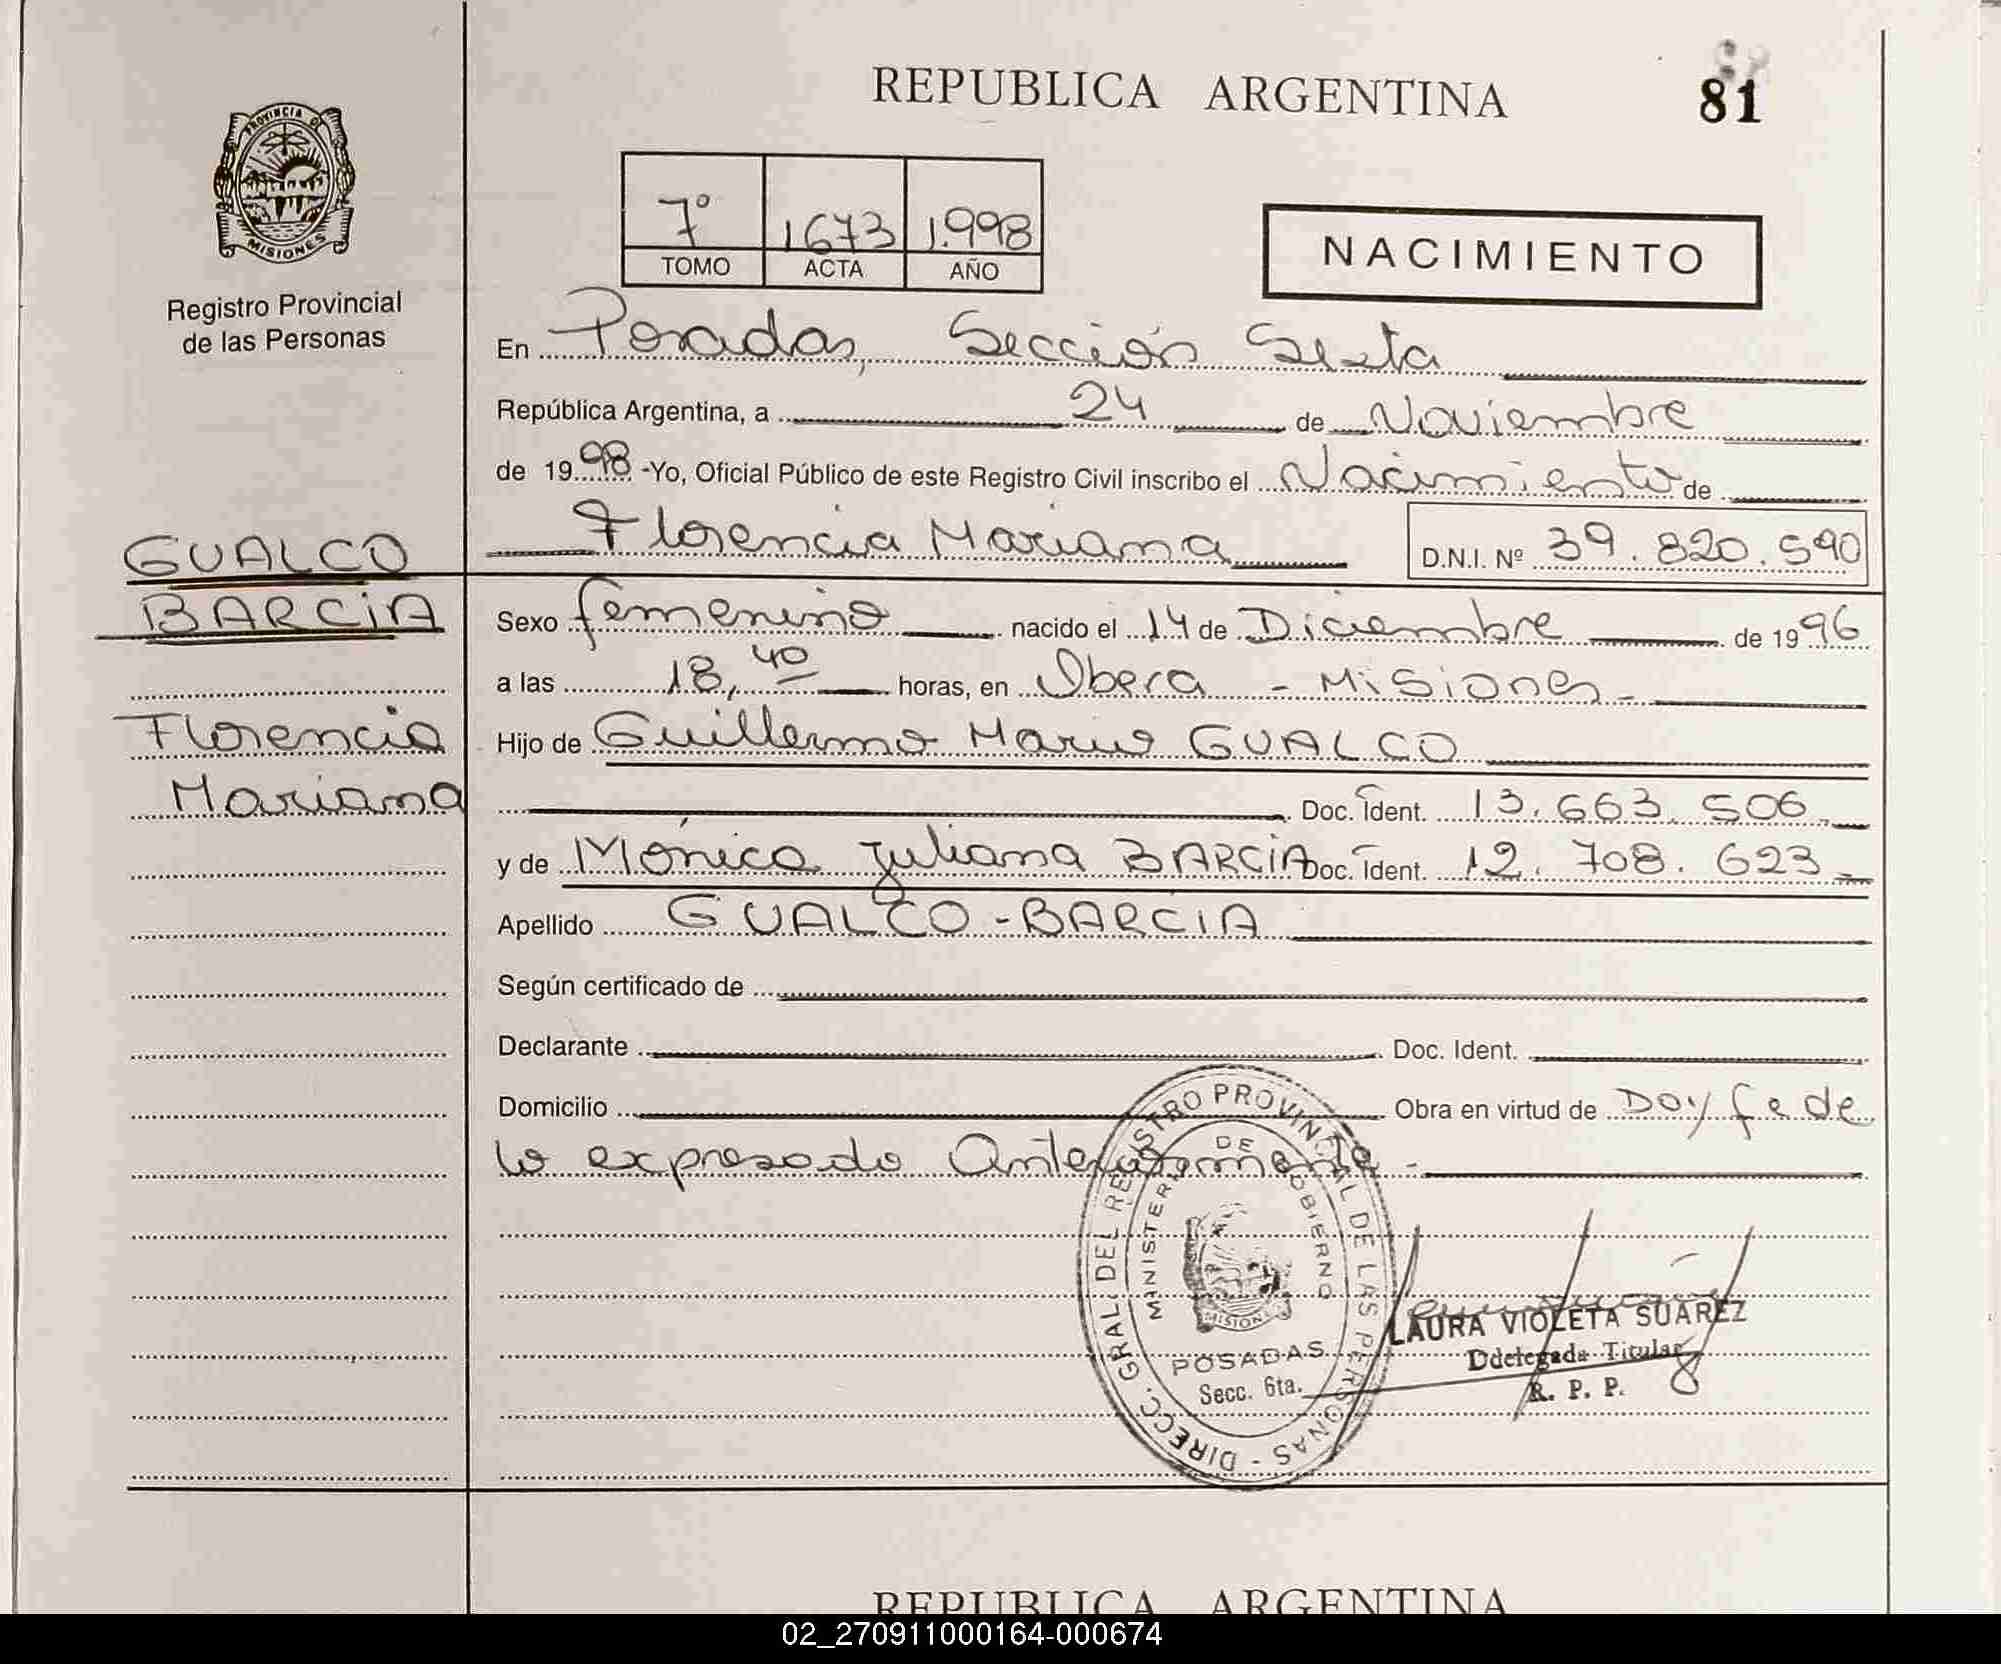 REPUBLICA ARGENTINA
81
PROVINCIA DE MISIONES
Registro Provincial
de las Personas
7º 1673 1.998
TOMO ACTA AÑO
NACIMIENTO
En Posadas, Sección Sexta
República Argentina, a 24 de Noviembre
de 1998 -Yo, Oficial Público de este Registro Civil inscribo el Nacimiento de
Florencia Mariana D.N.I. Nº 39.820.590
GUALCO
BARCIA
Florencia
Mariana
Sexo femenino nacido el 14 de Diciembre de 1996
a las 18,40 horas, en Obera - Misiones-
Hijo de Guillermo Mario GUALCO
Doc. Ident. 13.663.506
y de Mónica Juliana BARCIA Doc. Ident. 12.708.623
Apellido GUALCO-BARCIA
Según certificado de
Declarante Doc. Ident.
Domicilio Obra en virtud de Doy fe de
lo expresado Anteriormente-
DIRECC. GRAL. DEL REGISTRO PROVINCIAL DE LAS PERSONAS -
MINISTERIO DE GOBIERNO
MISIONES
POSADAS
Secc. 6ta.
LAURA VIOLETA SUAREZ
Ddelegada Titular
R. P. P.
REPUBLICA ARGENTINA
02_270911000164-000674